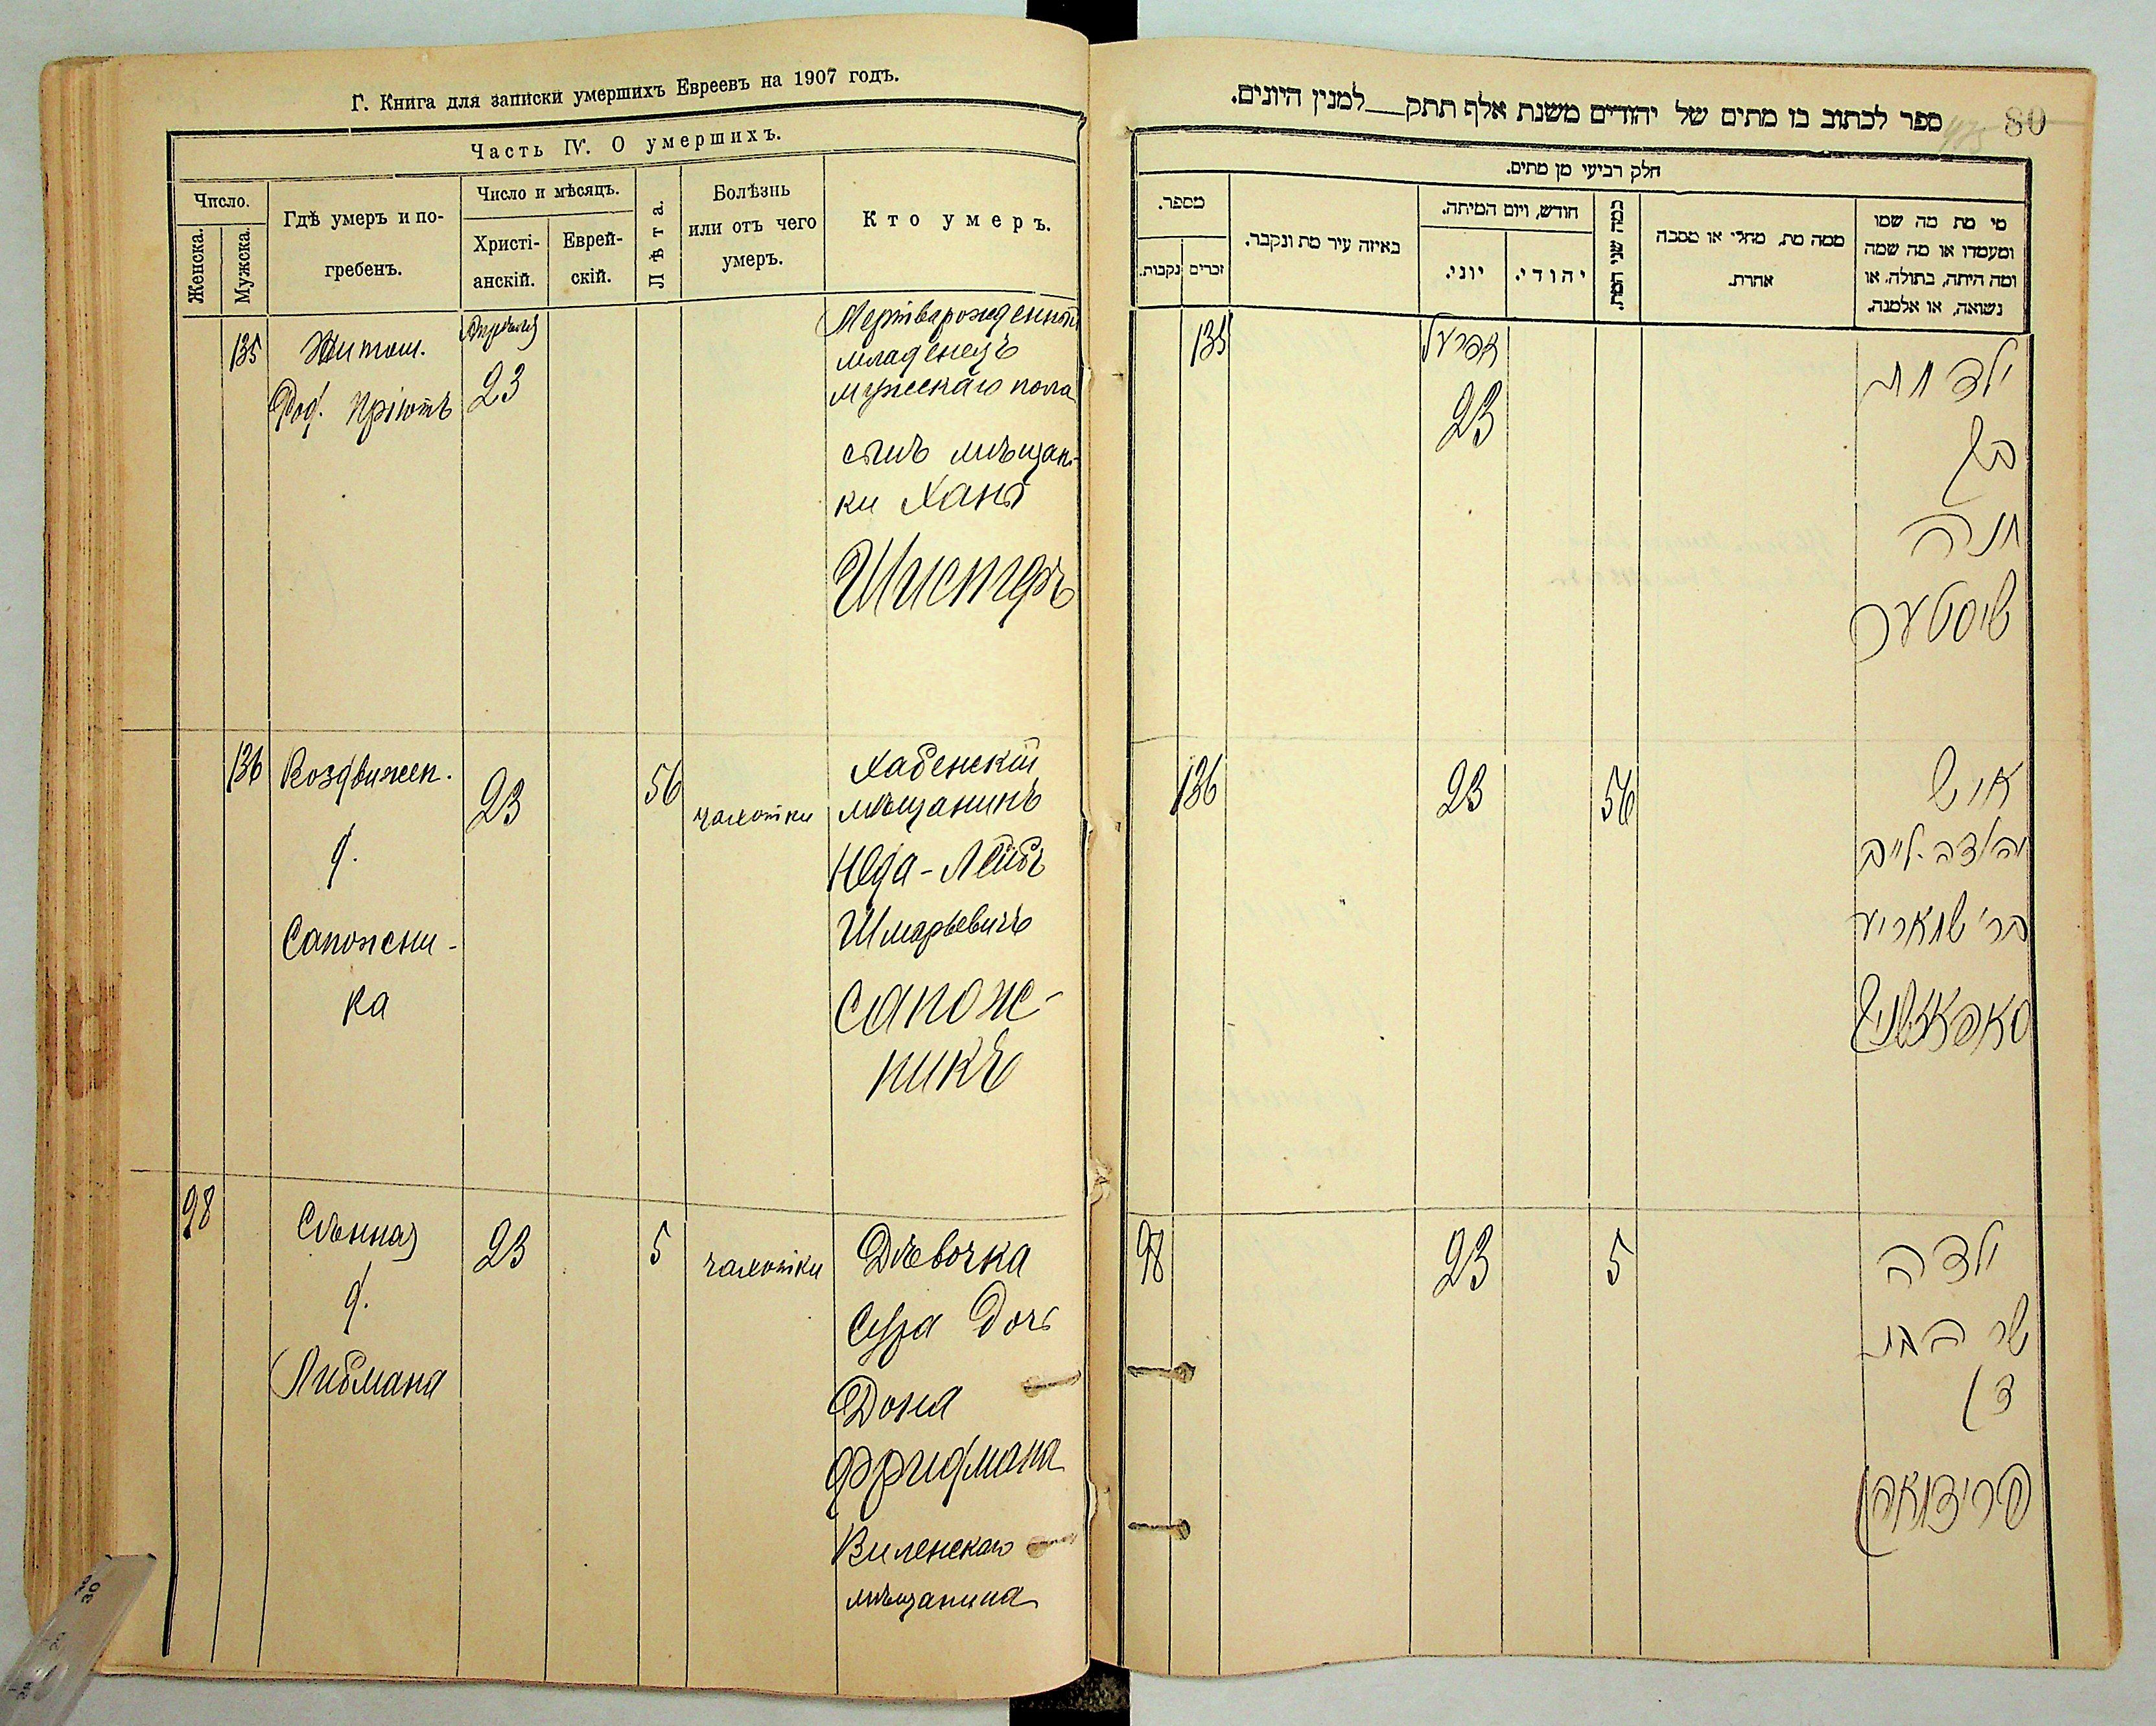 Г. Книга для записки умершихъ Евреевъ на 1907 годъ.
Часть IV. О умершихъ.
Число.
Женска.
Мужска.
Гдѣ умеръ и по-
гребенъ.
Число и мѣсяцъ.
Христі-
анскій.
Еврей-
скій.
Лѣта.
Болѣзнь
или отъ чего
умеръ.
Кто умеръ.
135
Житом.
Род. Пріютъ
Апрѣля
23
Мертворожденный
младенецъ
мужескаго пола
сынъ мѣщан-
ки Ханы
Шистеръ
136
Воздвижен.
д.
Сапожни-
ка
23
56
чахотки
Хабенскій
мѣщанинъ
Юда-Лейбъ
Шмарьевичъ
Сапож-
никъ
98
Сѣнная
д.
Либмана
23
5
чахотки
Дѣвочка
Сура дочь
Дона
Фридмана
Виленскаго
мѣщанина
ספר לכתוב בו מתים של יהודים משנת אלף תתק__למנין היונים.
80
חלק רביעי מן מתים.
מספר.
נקבות.
זכרים
באיזה עיר מת ונקבר.
חודש, ויום המיתה.
יוני.
יהודי.
כמה שני המת.
ממה מת, מחלי או מסבה
אחרת.
מי מת מה שמו
ומעמדו או מה שמה
ומה היתה, בתולה, או
נשואה, או אלמנה.
135
אפריעל
23
ילד מת
בן
חנה
שיסטער
136
23
56
איש
יהודה-לייב
בר' שמאריע
סאפאזשניק
98
23
5
ילדה
שרה בת
דן
פרידמאן